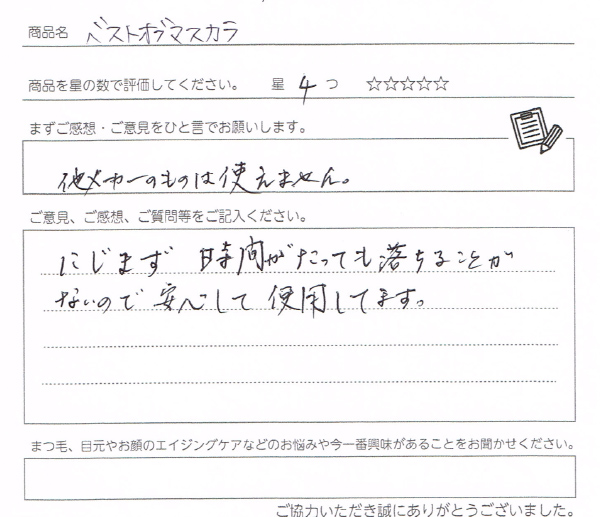 商品名 ベストオブマスカラ
商品を星の数で評価してください。 星 4 つ ☆☆☆☆☆
まずご感想・ご意見をひと言でお願いします。
他メーカーのものは使えません。
ご意見、ご感想、ご質問等をご記入ください。
にじまず 時間がたっても落ちることが
ないので 安心して 使用してます。
まつ毛、目元やお顔のエイジングケアなどのお悩みや今一番興味があることをお聞かせください。
ご協力いただき誠にありがとうございました。